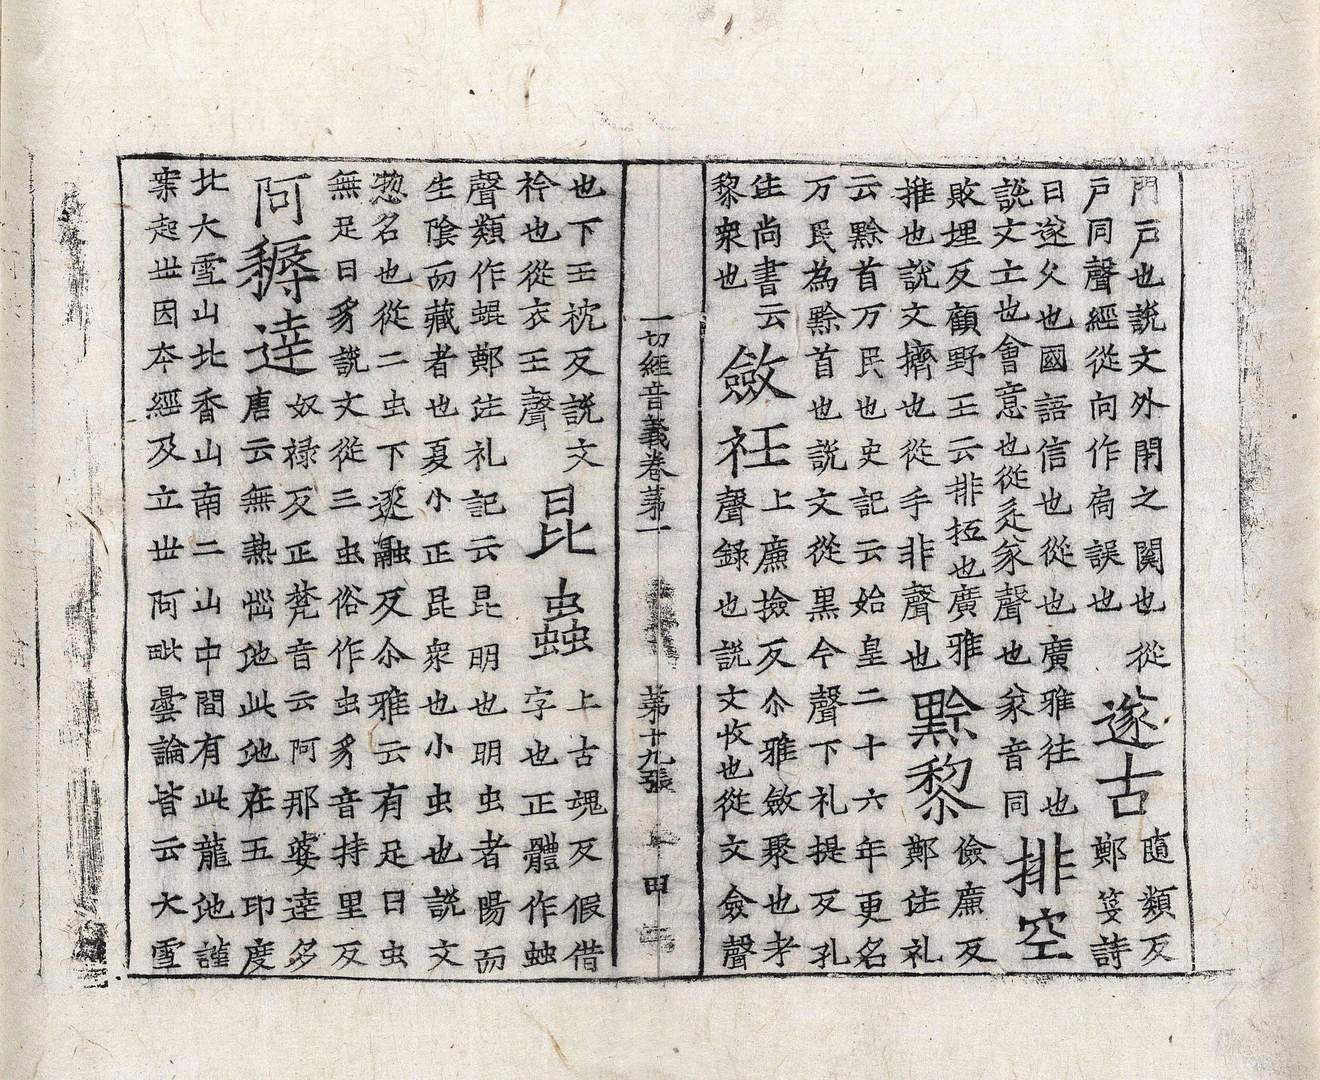 門戶也說文外閇之關也從
戶同聲經從向作扃誤也
遂古
隨類反
鄭箋詩
曰遂久也國語信也從也廣雅往也
說文土也會意也從辵㒸聲也㒸音同
排空
敗埋反顧野王云排抵也廣雅
推也說文擠也從手非聲也
黔黎
儉廉反
鄭注礼
云黔首万民也史記云始皇二十六年更名
万民為黔首也說文從黑今聲下礼提反孔
注尚書云
黎衆也
斂衽
上廉撿反尒雅斂聚也考
聲録也說文收也從文僉聲
一切經音義卷苐一 苐十九張 甲
也下壬枕反說文
衿也從衣壬聲
昆蟲
上古魂反假借
字也正體作䖵
聲類作蜫鄭注礼記云昆明也明虫者陽而
生陰而藏者也夏小正昆衆也小虫也說文
惣名也從二虫下逐融反尒雅云有足曰虫
無足曰豸說文從三虫俗作虫豸音持里反
阿耨達
奴禄反正梵音云阿那婆達多
唐云無熱惱池此池在五印度
北大雪山北香山南二山中間有此龍池謹
案起世因本經及立世阿毗曇論皆云大雪